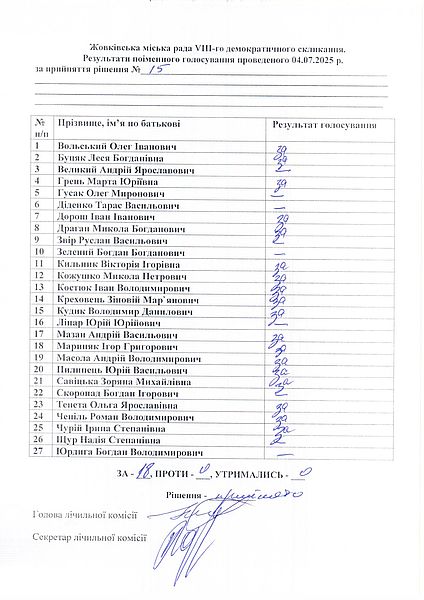 Жовківська міська рада VIII-го демократичного скликання.
Результати поіменного голосування проведеного 04.07.2025 р.
за прийняття рішення № 15
№ п/п Прізвище, ім’я по батькові Результат голосування
1 Вольський Олег Іванович за
2 Буняк Леся Богданівна за
3 Великий Андрій Ярославович —
4 Грень Марта Юріївна за
5 Гусак Олег Миронович —
6 Діденко Тарас Васильович —
7 Дорош Іван Іванович за
8 Драган Микола Богданович за
9 Звір Руслан Васильович за
10 Зелений Богдан Богданович —
11 Кильник Вікторія Ігорівна за
12 Кожушко Микола Петрович за
13 Костюк Іван Володимирович за
14 Креховець Зіновій Мар`янович за
15 Кудик Володимир Данилович за
16 Ліпар Юрій Юрійович —
17 Мазан Андрій Васильович за
18 Мариняк Ігор Григорович за
19 Масола Андрій Володимирович за
20 Пилипець Юрій Васильович за
21 Савіцька Зоряна Михайлівна за
22 Скоропад Богдан Ігорович —
23 Тенета Ольга Ярославівна за
24 Чепіль Роман Володимирович за
25 Чурій Ірина Степанівна за
26 Щур Надія Степанівна —
27 Юрдига Богдан Володимирович —
ЗА - 18, ПРОТИ - 0, УТРИМАЛИСЬ - 0
Рішення - прийнято
Голова лічильної комісії
Секретар лічильної комісії